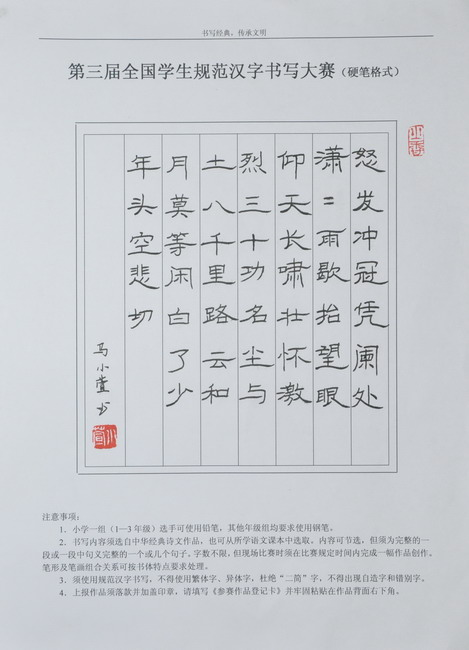 书写经典，传承文明
第三届全国学生规范汉字书写大赛（硬笔格式）
怒发冲冠凭阑处
潇〻雨歇抬望眼
仰天长啸壮怀激
烈三十功名尘与
土八千里路云和
月莫等闲白了少
年头空悲切
马小萱书
小萱
注意事项：
1．小学一组（1—3 年级）选手可使用铅笔，其他年级组均要求使用钢笔。
2．书写内容须选自中华经典诗文作品，也可从所学语文课本中选取。内容可节选，但须为完整的一
段或一段中句义完整的一个或几个句子。字数不限，但现场比赛时须在比赛规定时间内完成一幅作品创作。
笔形及笔画组合关系可按书体特点要求处理。
3．须使用规范汉字书写，不得使用繁体字、异体字，杜绝“二简”字，不得出现自造字和错别字。
4．上报作品须落款并加盖印章，请填写《参赛作品登记卡》并牢固粘贴在作品背面右下角。